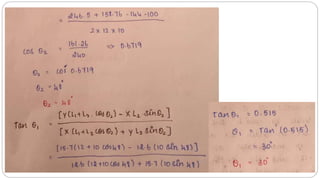 = 246.5 + 158.76 - 144 - 100
2 x 12 x 10
cos θ₂ = 161.26 / 240 => 0.6719
θ₂ = cos⁻ 0.6719
θ₂ = 48°
θ₂ = 48°
Tan θ₁ = [Y(L₁+L₂ cos θ₂) - X L₂ sin θ₂]
[X (L₁+L₂ cos θ₂) + Y L₂ sin θ₂]
= [15.7(12 + 10 cos 48) - 12.6 (10 sin 48)]
12.6 (12+10 cos 48) + 15.7 (10 sin 48)
Tan θ₁ = 0.515
θ₁ = Tan⁻ (0.515)
= 30°
θ₁ = 30°